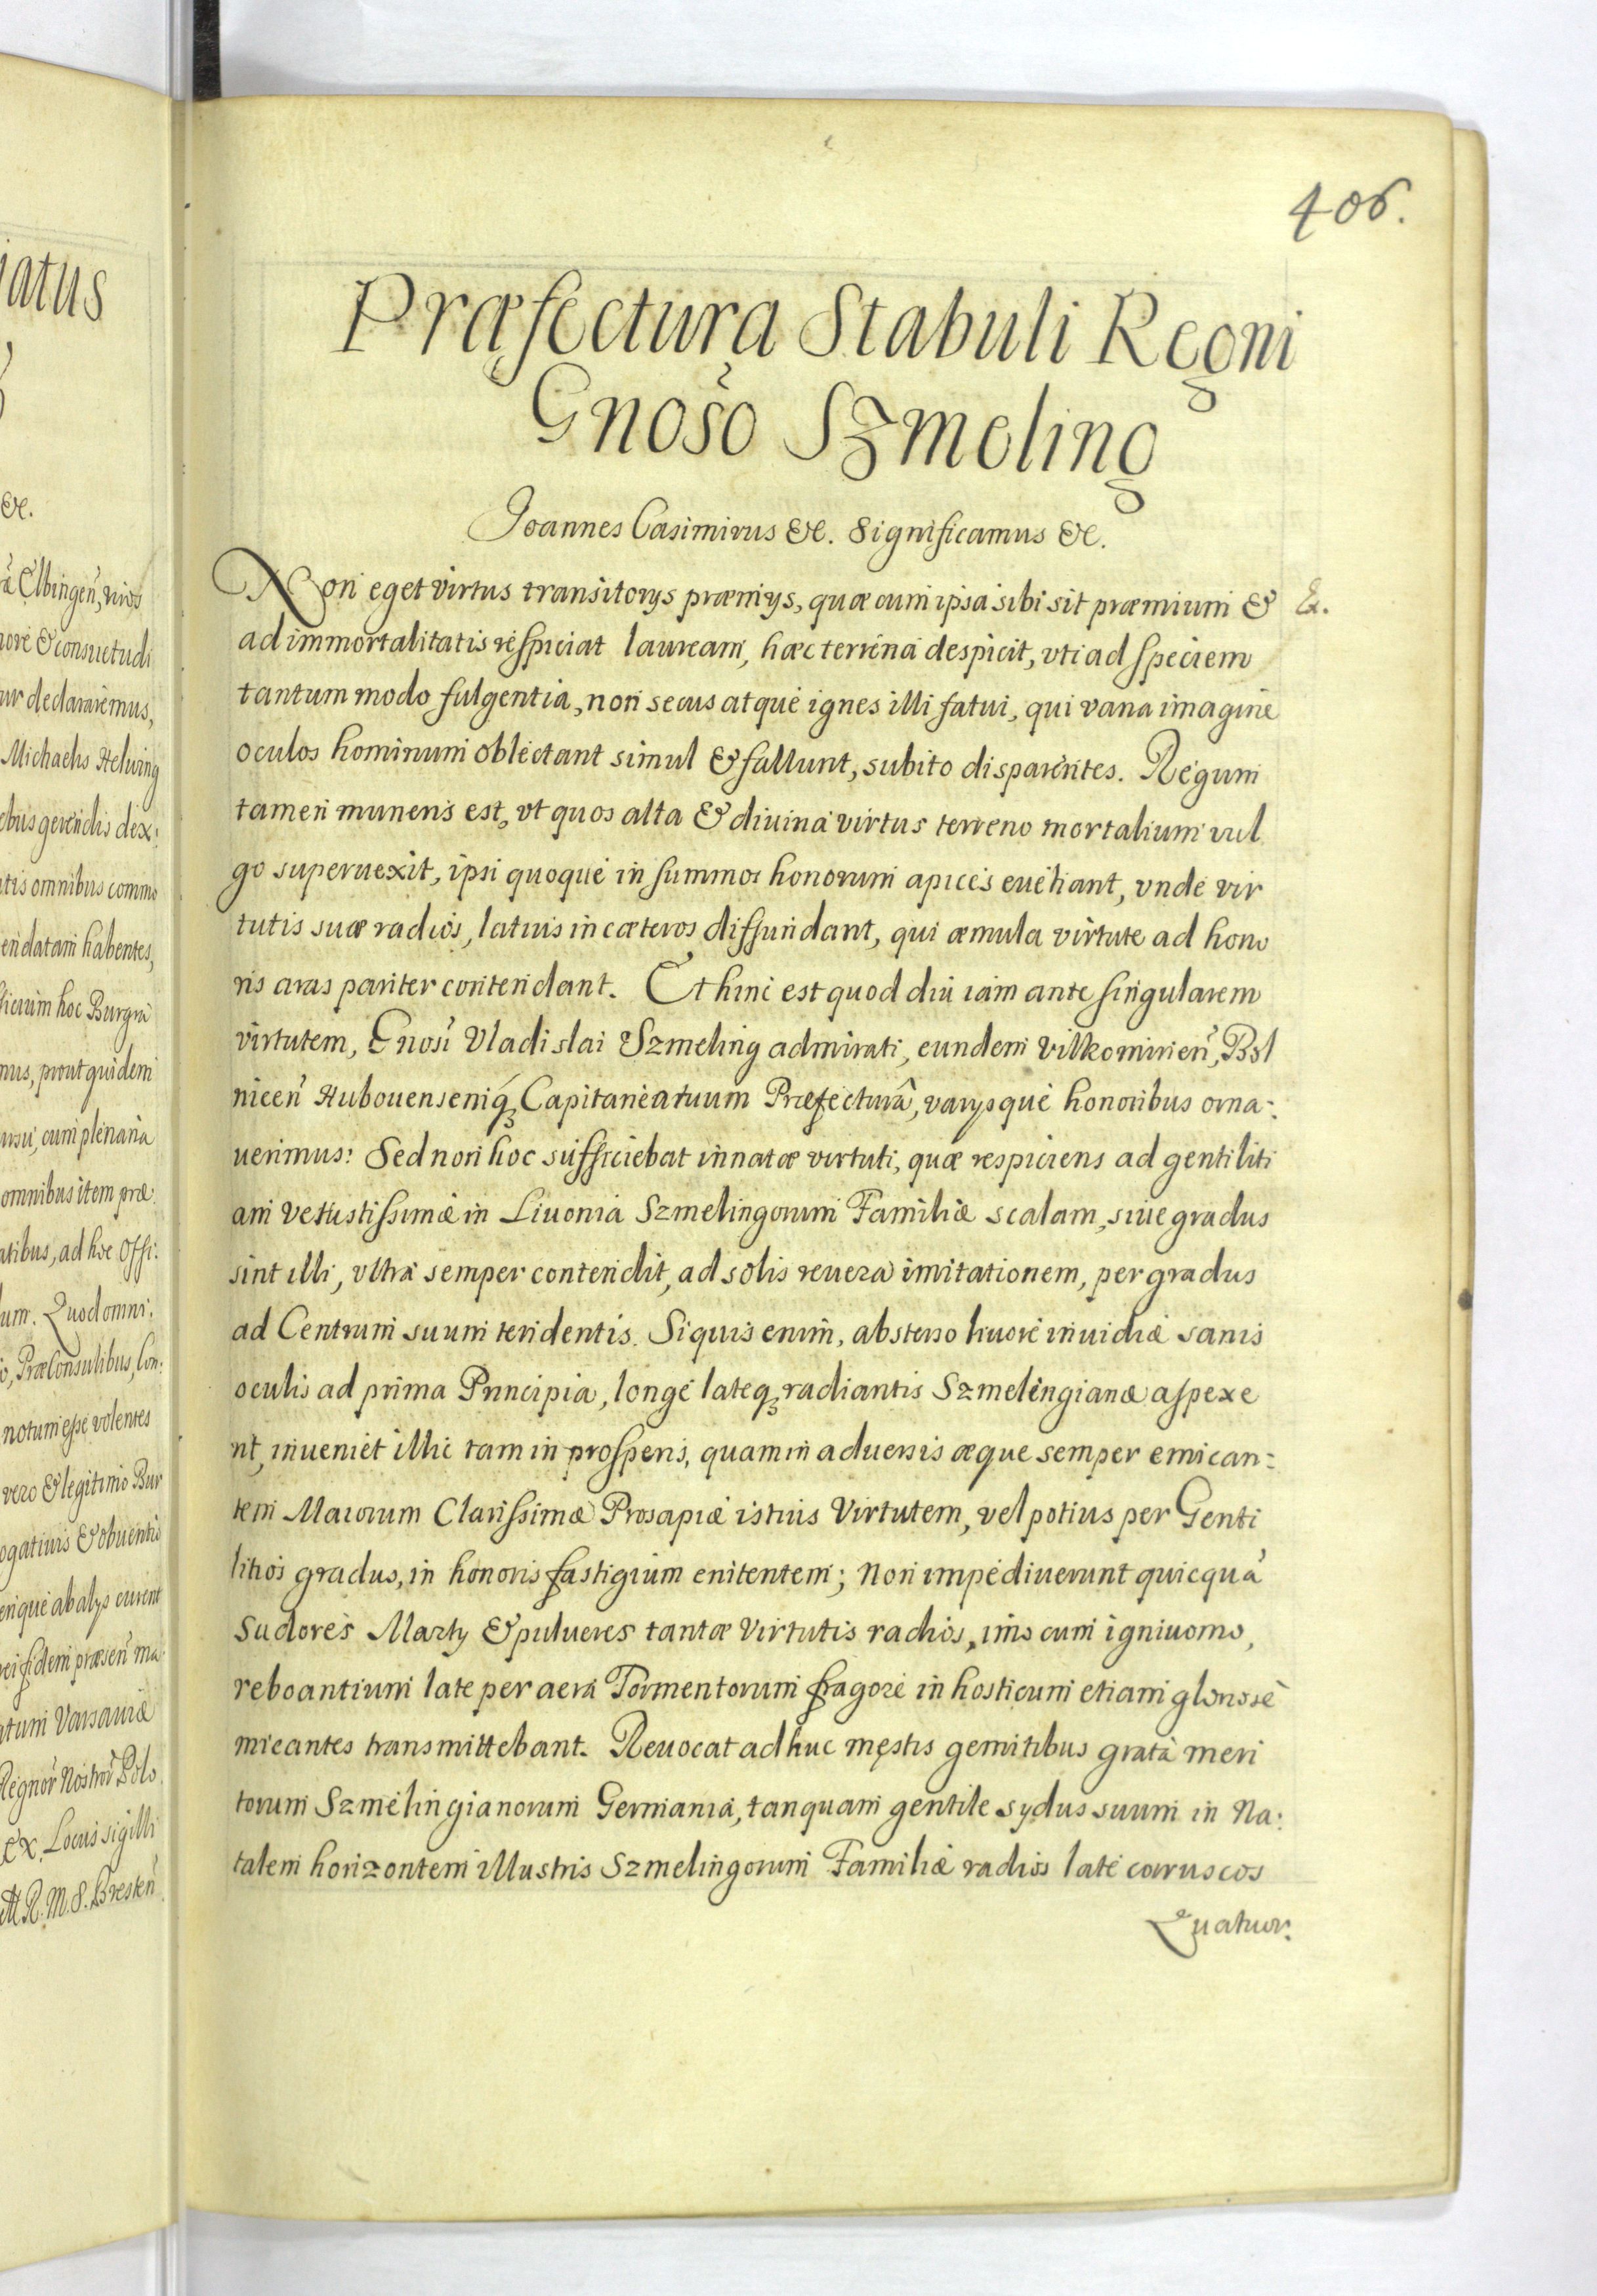 iatus
&c.
ra Elbingen, viros
nore & consuetudi
ur declararemus,
Michaelis Helwing
ebus gerendis dex:
atis omnibus commo
endatam habentes,
ficium hoc Burgra
mus, prout quidem
ursu, cum plenaria
omnibus item præ:
atibus, ad hoc Offi:
lum. Quod omni:
o, PræConsulibus, Con:
notum esse volentes
vero & legitimo Bur
ogativis & obuentio
erique ab alys curent
rei fidem præsen ma
atum Varsauiæ
Regnor Nostror Polo
ex. Locus sigilli
R. M. S. Bresten
406.
Præfectura Stabuli Regni
Gnoso Szmeling
Joannes Casimirus &c. Significamus &c.
Non eget virtus transitorys præmys, quæ cum ipsa sibi sit præmium & &.
ad immortalitatis respiciat lauream, hæc terrena despicit, vti ad speciem
tantum modo fulgentia, non secus atque ignes illi fatui, qui vana imagine
oculos hominum oblectant simul & fallunt, subito disparentes. Regum
tamen muneris est, vt quos alta & diuina virtus terreno mortalium vul
go superuexit, ipsi quoque in summos honorum apices euehant, vnde vir
tutis suæ radios, latius in cæteros diffundant, qui æmula virtute ad hono
ris aras pariter contendant. Et hinc est quod diu iam ante singularem
virtutem, Gnosi Vladislai Szmeling admirati, eundem Vilkomirien, Bol
nicen Hubouensenq Capitaneatuum Præfectura, varysque honoribus orna:
uerimus: Sed non hoc sufficiebat innatæ virtuti, quæ respiciens ad gentiliti
am vetustissimæ in Liuonia Szmelingorum Familiæ scalam, siue gradus
sint illi, vltra semper contendit, ad solis reuera imitationem, per gradus
ad Centrum suum tendentis. Siquis enim, absterso liuore inuidiæ sanis
oculis ad prima Principia, longe lateq radiantis Szmelingianæ aspexe
rit, inueniet illic tam in prosperis, quam in aduersis æque semper emican:
tem Maiorum Clarissimæ Prosapiæ istius Virtutem, vel potius per Genti
litios gradus, in honoris fastigium enitentem; Non impediuerunt quicqua
sudores Marty & pulueres tantæ Virtutis radios, imo cum igniuomo,
reboantium late per aera Tormentorum fragore in hosticum etiam gloriose
micantes transmittebant. Reuocat adhuc męstis gemitibus grata meri
torum Szmelingianorum Germania, tanquam gentile sydus suum in Na:
talem horizontem illustris Szmelingorum Familiæ radios late coruscos
Quatuor: